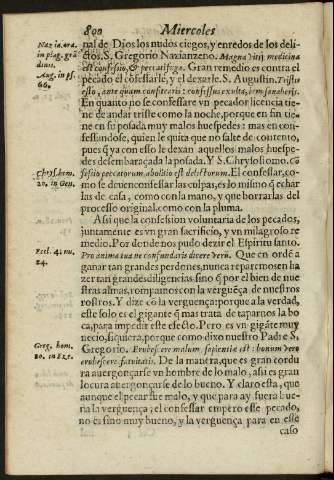 800 Miercoles
Naz in ora.
in plag. grã
dinis.
Aug. in ps.
66.
nal de Dios los nudos ciegos, y enredos de los deli-
ctos. S. Gregorio Nazianzeno. Magna vitij medicina
est confessio, & peccati fuga. Gran remedio es contra el
pecado el cõfessarle, y el dexarle. S. Augustin. Tristis
esto, ante quam confitearis: confessus exulta, iam sanaberis.
En quanto no se confessare vn pecador licencia tie-
ne de andar triste como la noche, porque en fin tie-
ne en su posada muy malos huespedes: mas en con-
fessandose, quien le quita que no salte de contento,
pues q̃ ya con esso le dexan aquellos malos huespe-
Chrys. hom.
20. in Gen.
des desembaraçada la posada. Y S. Chrysostomo. Cõ
fessio peccatorum, abolitio est delictorum. El confessar, co-
mo se deuen confessar las culpas, es lo mismo q̃ echar
las de casa, como con la mano, y que borrarlas del
processo original, como con la pluma.
Assi que la confession voluntaria de los pecados,
juntamente es vn gran sacrificio, y vn milagroso re
medio. Por donde nos pudo dezir el Espiritu santo.
Eccl. 4. nu.
24.
Pro anima tua ne confundaris dicere verũ. Que en ordẽ a
ganar tan grandes perdones, nunca reparemos en ha
zer tan grãdes diligencias, sino q̃ por el bien de nue
stras almas, rompamos con la verguẽça de nuestros
rostros. Y dize cõ la verguença: porque a la verdad,
este solo es el gigante q̃ mas trata de taparnos la bo
ca, para impedir este efecto. Pero es vn gigãte muy
necio, siquiera, porque como dixo nuestro Padre S.
Greg. hom.
10. in Eze.
Gregorio. Erubescere malum sapientiæ est: bonum verò
erubescere fatuitatis. De la manera, que es gran cordu
ra auergonçarse vn hombre de lo malo, assi es gran
locura auergonçarse de lo bueno. Y claro esta, que
aunque el pecar fue malo, y que para ay fuera bue-
na la verguença; el confessar empero esse pecado,
no es sino muy bueno, y la verguença para en este
caso